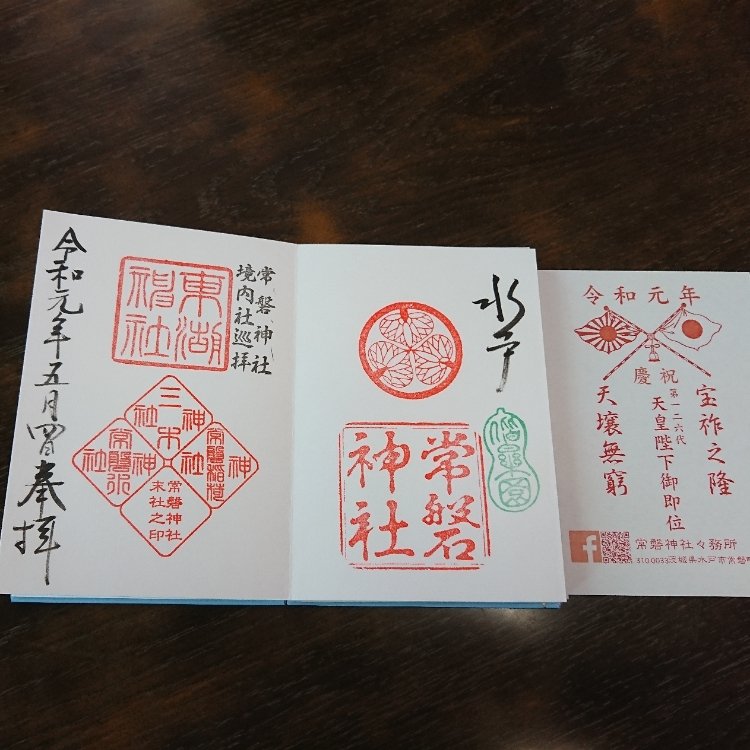 水戸
常磐神社
偕楽園
常磐神社
境内社巡拝
東湖神社
三木神社
常磐稲荷神社
常磐神社
末社之印
令和元年五月四日奉拝
令和元年
慶祝
宝祚之隆
第一二六代
天皇陛下御即位
天壌無窮
常磐神社々務所
310-0033茨城県水戸市常磐町